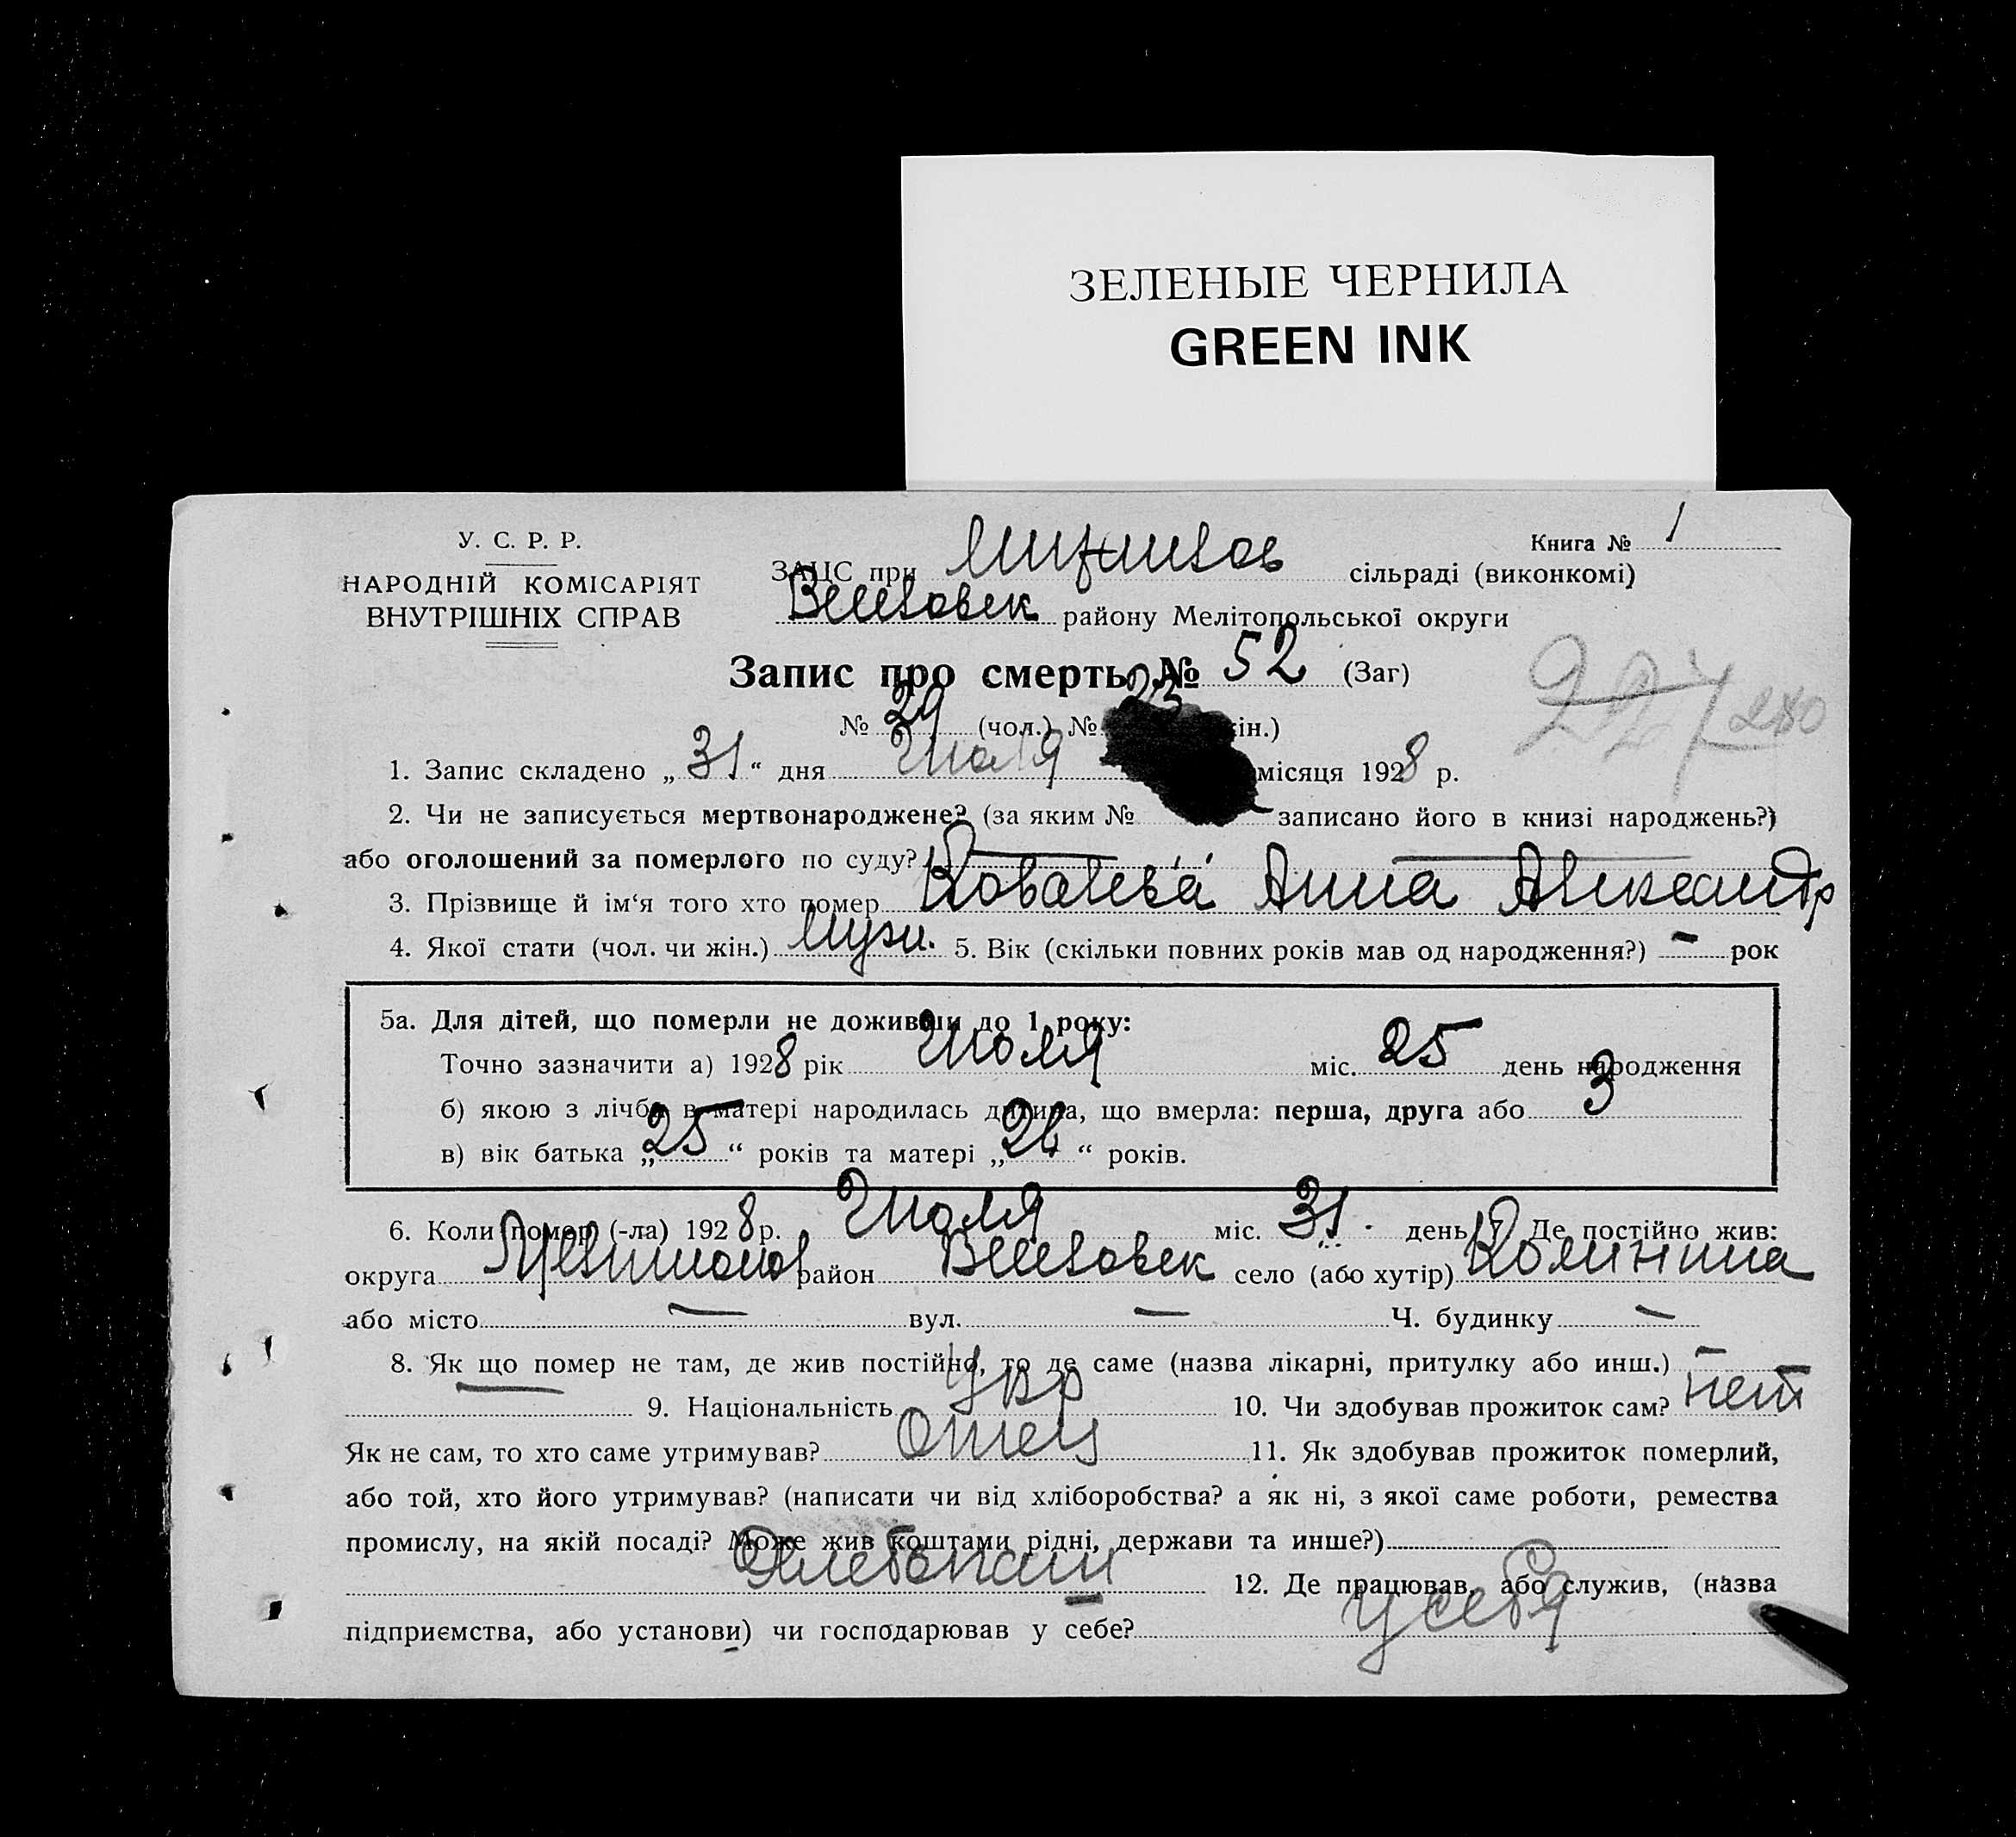 ЗЕЛЕНЫЕ ЧЕРНИЛА
GREEN INK
У. С. Р. Р.
НАРОДНІЙ КОМІСАРІЯТ
ВНУТРІШНІХ СПРАВ
Книга № 1
ЗАЦС при сільраді (виконкомі)
району Мелітопольської округи
Запис про смерть № 52 (Заг)
№ 29 (чол.) № 23 ін.)
1. Запис складено „31“ дня Июля місяця 1928 р.
2. Чи не записується мертвонароджене? (за яким № записано його в книзі народжень?)
або оголошений за померлого по суду?
3. Прізвище й ім‘я того хто помер Ковалева Анна Александр
4. Якої стати (чол. чи жін.) 5. Вік (скільки повних років мав од народження?) – рок
5а. Для дітей, що померли не доживши до 1 року:
Точно зазначити а) 1928 рік Июля міс. 25 день народження
б) якою з лічби в матері народилась дитина, що вмерла: перша, друга або 3
в) вік батька „25“ років та матері „24“ років.
6. Коли помер (-ла) 1928 р. Июля міс. 31 день 7. Де постійно жив:
округа район село (або хутір) Калинина
або місто — вул. — Ч. будинку —
8. Як що помер не там, де жив постійно, то де саме (назва лікарні, притулку або инш.) —
— 9. Національність Укр 10. Чи здобував прожиток сам? нет
Як не сам, то хто саме утримував? Отец 11. Як здобував прожиток померлий,
або той, хто його утримував? (написати чи від хліборобства? а як ні, з якої саме роботи, ремества
промислу, на якій посаді? Може жив коштами рідні, держави та инше?)
Хлебопаш 12. Де працював, або служив, (назва
підприємства, або установи) чи господарював у себе? у себя